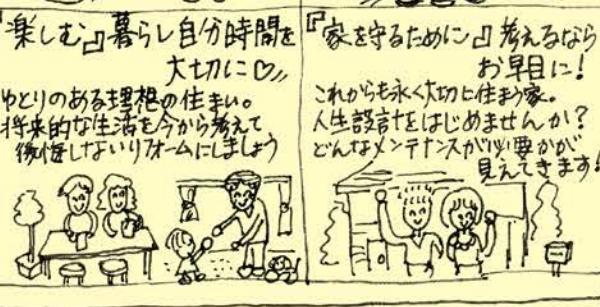 『楽しむ』暮らし自分時間を
大切に♡〃
ゆとりのある理想の住まい。
将来的な生活を今から考えて
後悔しないリフォームにしましょう
『家を守るために』考えるなら
お早目に！
これからも永く大切に住まう家。
人生設計をはじめませんか？
どんなメンテナンスが必要かが
見えてきます！